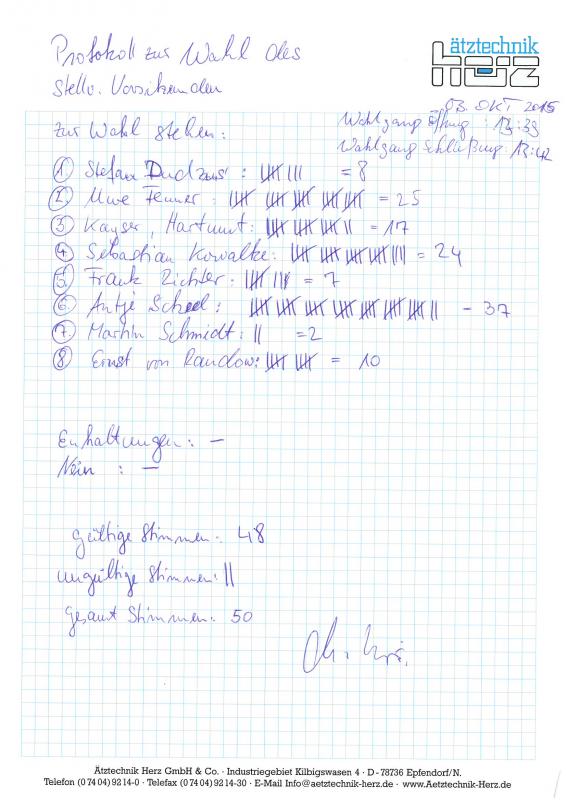 Protokoll zur Wahl des
ätztechnik
HERZ
Stellv. Vorsitzenden
03. OKT 2015
zur Wahl stehen:
Wahlgang öffnung : 13:39
Wahlgang Schließung: 13:42
① Stefan Dudzus : 卌 III = 8
② Uwe Fenner : 卌 卌 卌 卌 卌 = 25
③ Kayser, Hartmut : 卌 卌 卌 II = 17
④ Sebastian Kowalke: 卌 卌 卌 卌 IIII = 24
⑤ Frank Richter : 卌 II = 7
⑥ Antje Scheel : 卌 卌 卌 卌 卌 卌 卌 II - 37
⑦ Martin Schmidt : II = 2
⑧ Ernst von Randow: 卌 卌 = 10
Enhaltungen : -
Nein : -
gültige Stimmen : 48
ungültige Stimmen: II
gesamt Stimmen : 50
Ätztechnik Herz GmbH & Co. · Industriegebiet Kilbigswasen 4 · D - 78736 Epfendorf/N.
Telefon (0 74 04) 92 14-0 · Telefax (0 74 04) 92 14-30 · E-Mail Info@aetztechnik-herz.de · www.Aetztechnik-Herz.de